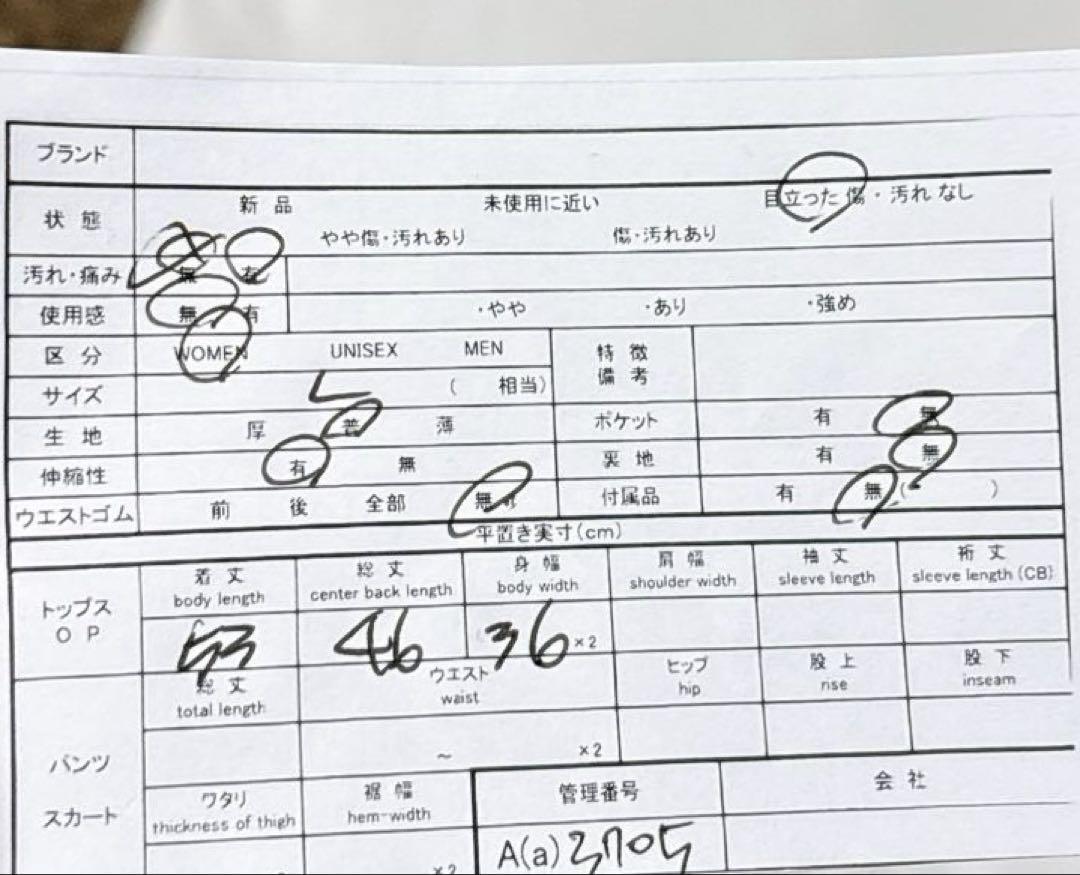 ブランド
状態 新品 未使用に近い 目立った傷・汚れなし
やや傷・汚れあり 傷・汚れあり
汚れ・痛み 無 有
使用感 無 有 ・やや ・あり ・強め
区分 WOMEN UNISEX MEN 特徴
備考
サイズ L ( 相当)
生地 厚 普 薄 ポケット 有 無
伸縮性 有 無 裏地 有 無
ウエストゴム 前 後 全部 無 付属品 有 無 ( )
平置き実寸(cm)
トップス
OP
着丈 総丈 身幅 肩幅 袖丈 裄丈
body length center back length body width shoulder width sleeve length sleeve length (CB)
53 46 36 ×2
パンツ
スカート
総丈 ウエスト ヒップ 股上 股下
total length waist hip rise inseam
~ ×2
ワタリ 裾幅 管理番号 会社
thickness of thigh hem-width
×2 A(a) 3705